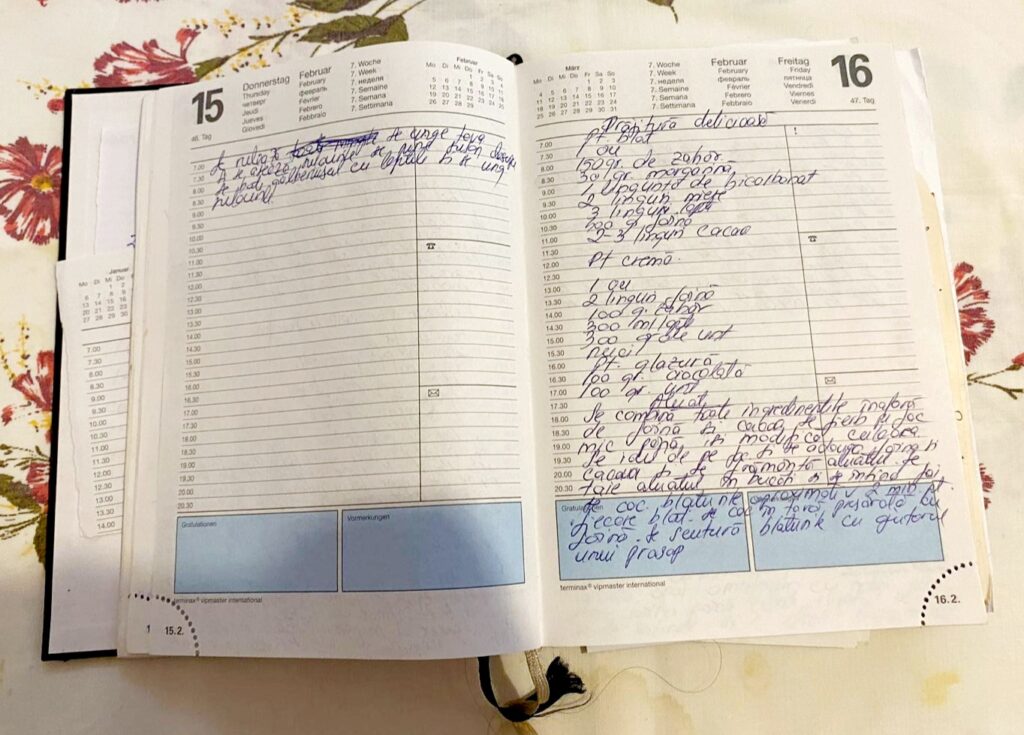 15
Donnerstag
Thursday
четверг
Jeudi
Jueves
Giovedi
Februar
February
февраль
Février
Febrero
Febbraio
7. Woche
7. Week
7. неделя
7. Semaine
7. Semana
7. Settimana
Februar
Mo Di Mi Do Fr Sa So
1 2 3 4
5 6 7 8 9 10 11
12 13 14 15 16 17 18
19 20 21 22 23 24 25
26 27 28
46. Tag
se unge tava
se bat gălbenușul cu laptele și se ung
7.00
7.30
8.00
8.30
9.00
9.30
10.00
10.30
11.00
11.30
12.00
12.30
13.00
13.30
14.00
14.30
15.00
15.30
16.00
16.30
17.00
17.30
18.00
18.30
19.00
19.30
20.00
20.30
Gratulationen
Vormerkungen
terminax® vipmaster international
1 15.2.
Januar
Mo Di Mi Do
7.00
7.30
8.00
8.30
9.00
9.30
10.00
10.30
11.00
11.30
12.00
12.30
13.00
13.30
14.00
März
Mo Di Mi Do Fr Sa So
1 2 3
4 5 6 7 8 9 10
11 12 13 14 15 16 17
18 19 20 21 22 23 24
25 26 27 28 29 30 31
7. Woche
7. Week
7. неделя
7. Semaine
7. Semana
7. Settimana
Februar
February
февраль
Février
Febrero
Febbraio
Freitag
Friday
пятница
Vendredi
Viernes
Venerdi
16
47. Tag
Prăjitură delicioasă
pt blat
1 ou
150 gr. de zahăr
50 gr. margarină
1 linguriță de bicarbonat
2 linguri miere
3 linguri lapte
500 gr făină
2-3 linguri cacao
Pt cremă.
1 ou
2 linguri făină
100 gr zahăr
300 ml lapte
300 gr de unt
nuci
Pt. glazură
100 gr. ciocolată
100 gr unt
Aluat
Se combină toate ingredientele în afară
de făină și cacao, se fierb pe foc
mic până își modifică culoarea
Se ia de pe foc și se adauga făina și
cacaoa și se frământă aluatul. Se
taie aluatul în bucăți și se întind foi
Se coc blaturile aproximativ 5 min.
fiecare blat. Se coc în tavă presărată cu
făină. Se scutură blaturile cu ajutorul
unui prosop
Gratulationen
terminax® vipmaster international
16.2.